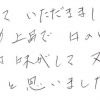 て いただきまし
り 上品で 日の
味がして 又
と思いました